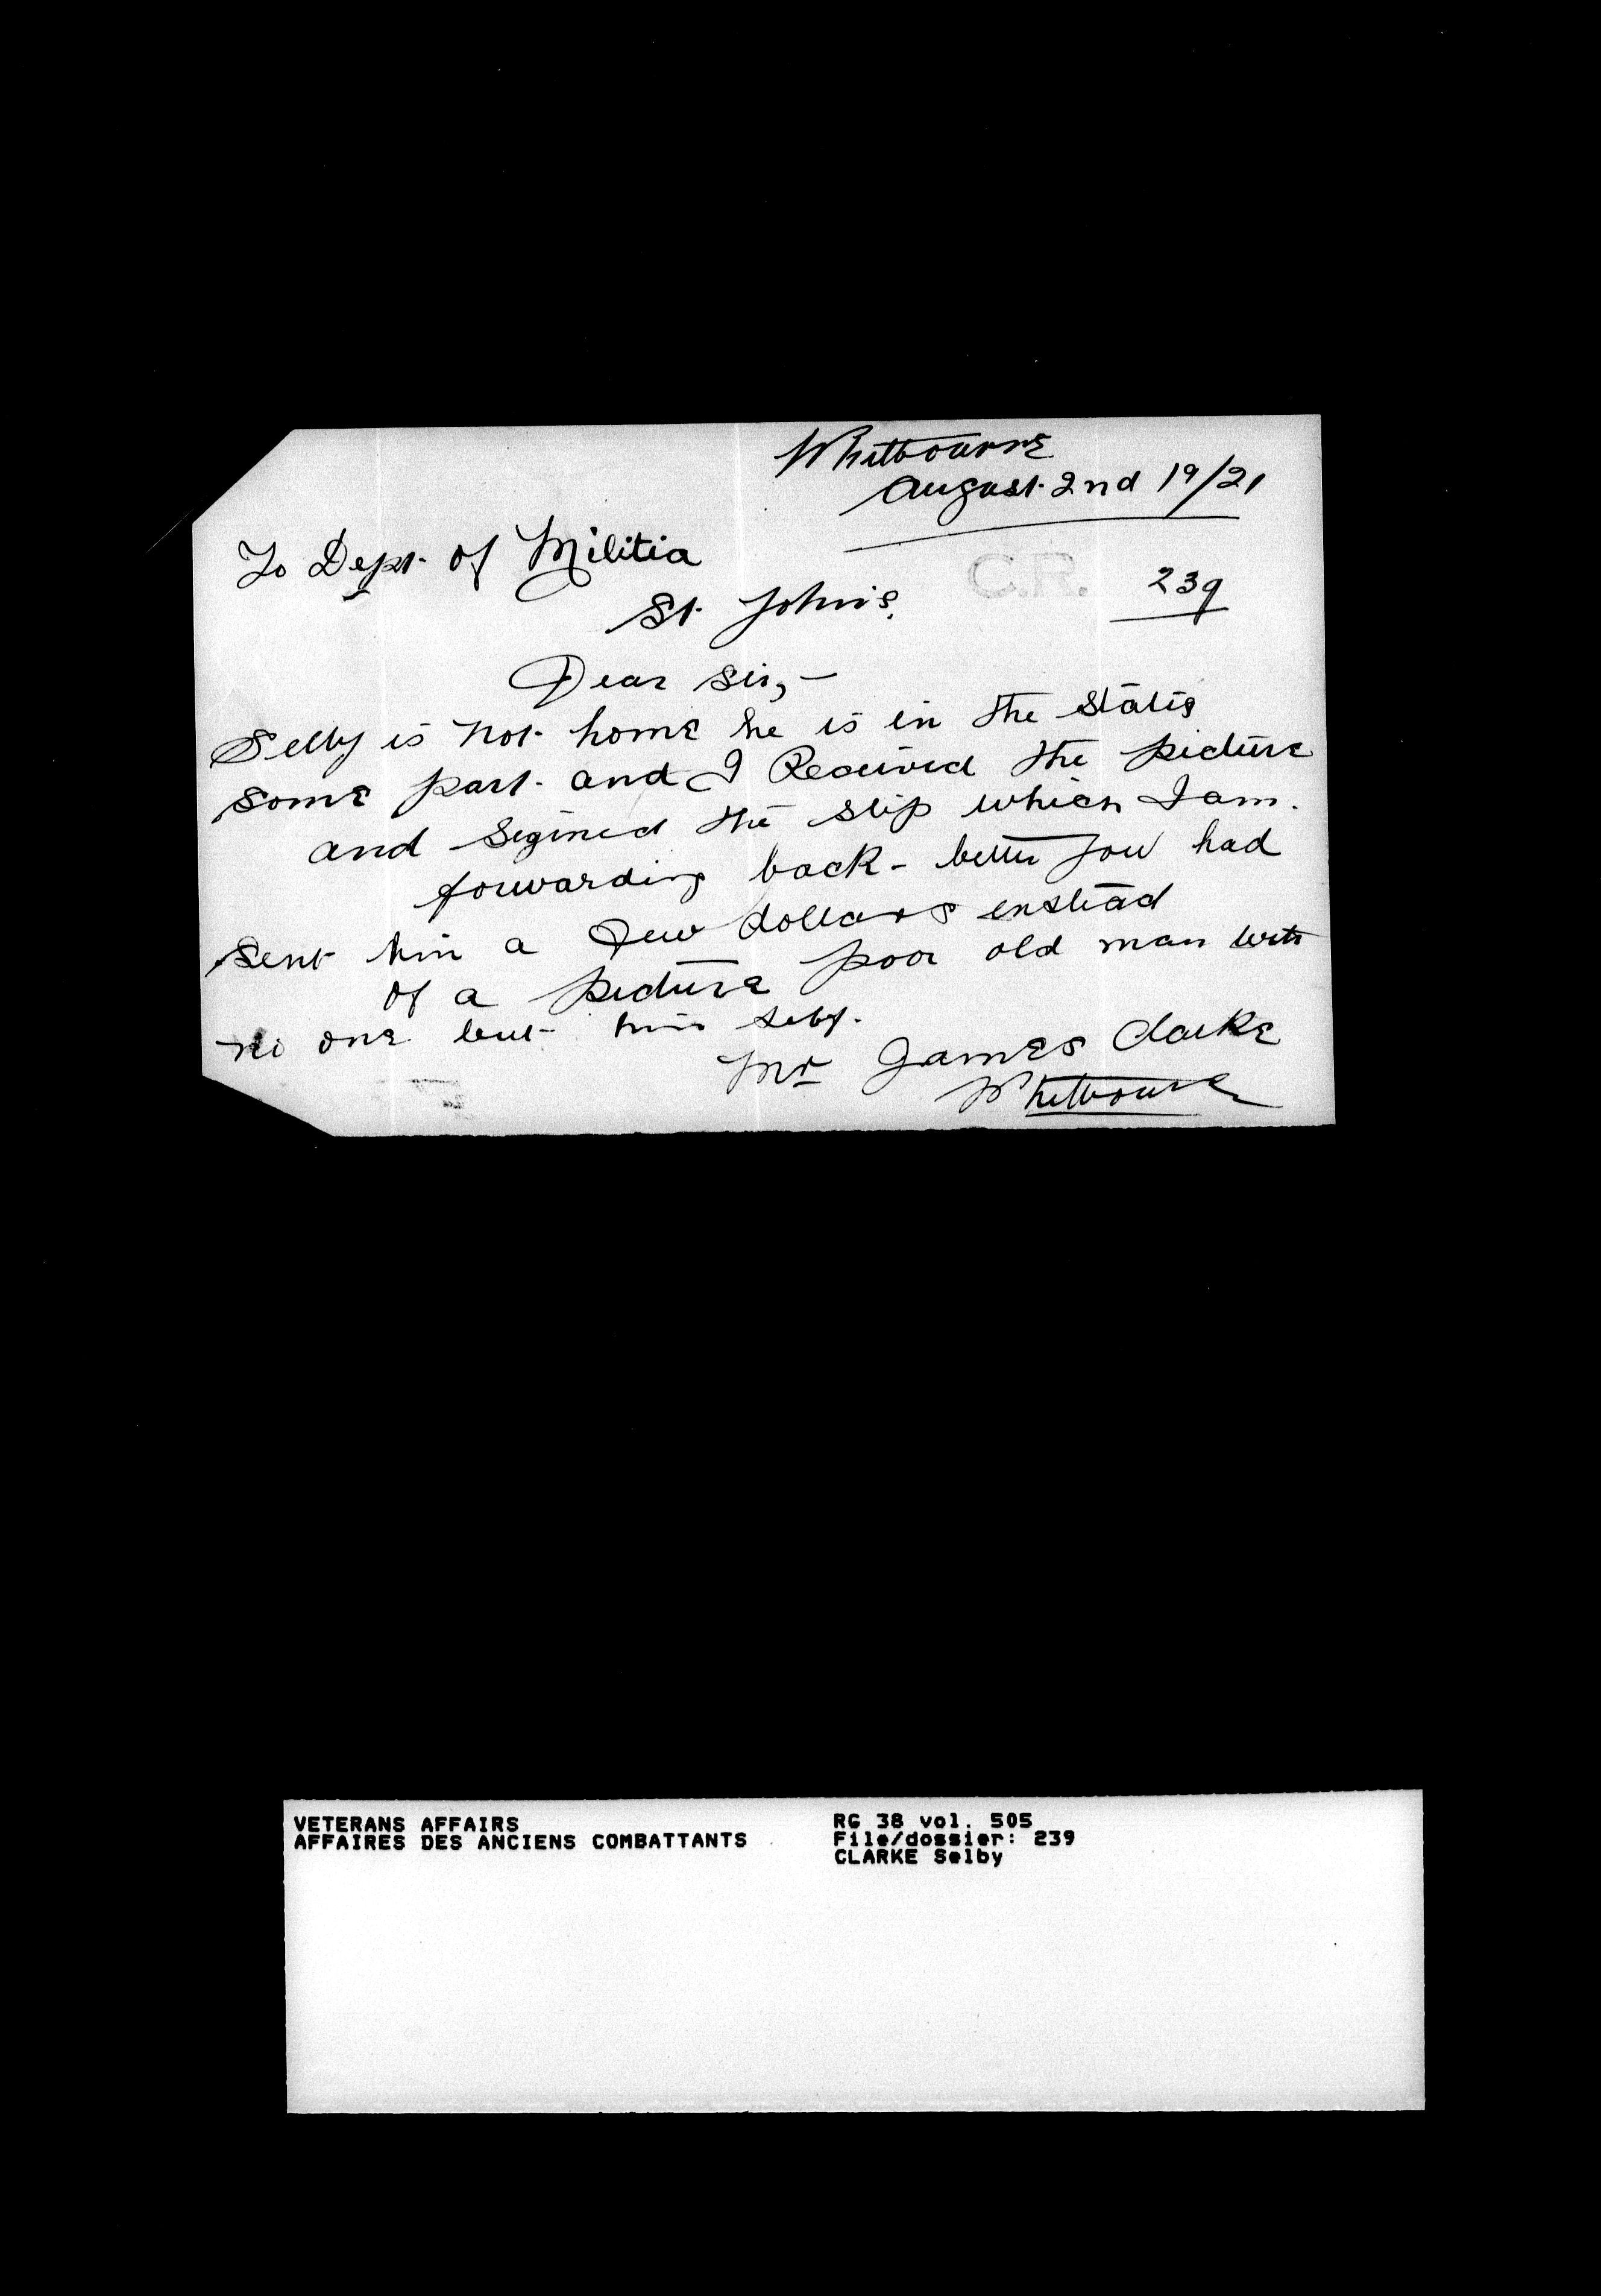 Whitbourne
August 2nd 19/21
To Dept. of Militia
C.R. 239
St. John's.
Dear Sir,-
Selby is not home he is in the States
some part. and I Received the picture
and Sigined the slip which I am.
forwarding back - better you had
sent him a few dollars enstead
of a picture poor old man with
no one but him self.
Mr James Clarke
Whitbourne
VETERANS AFFAIRS RG 38 vol. 505
AFFAIRES DES ANCIENS COMBATTANTS File/dossier: 239
CLARKE Selby